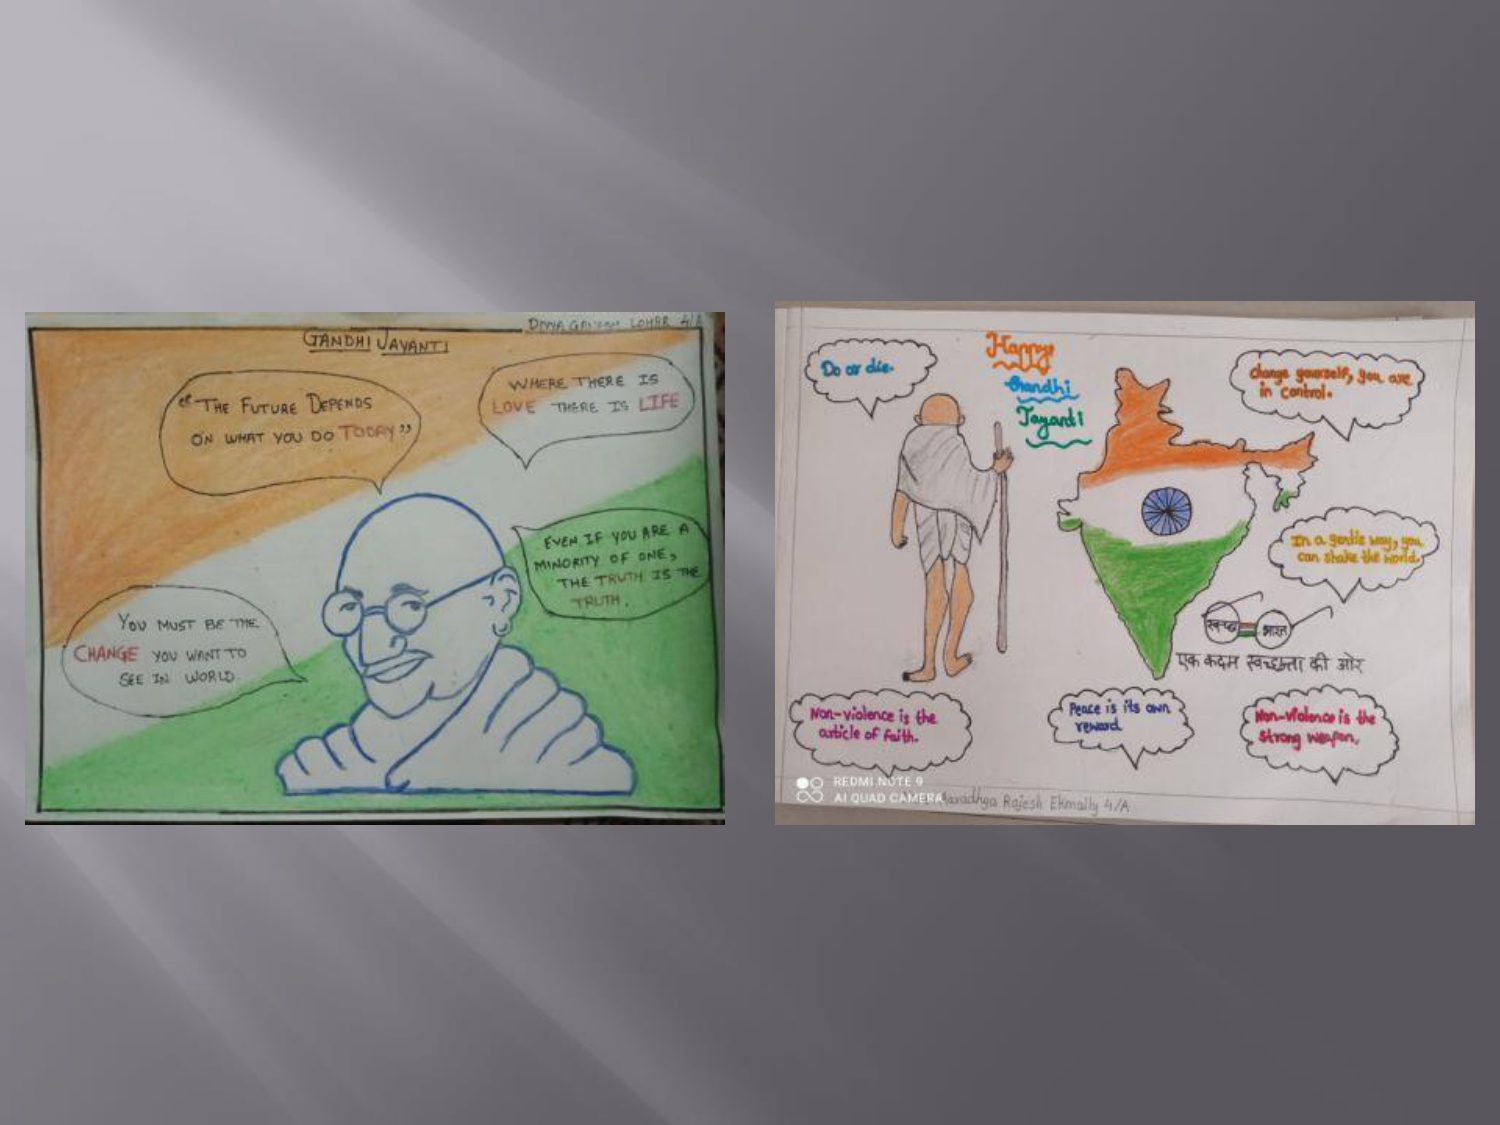 GANDHI JAYANTI
LOHAR 4/A
“THE FUTURE DEPENDS
ON WHAT YOU DO TODAY”
WHERE THERE IS
LOVE THERE IS LIFE
EVEN IF YOU ARE A
MINORITY OF ONE,
THE TRUTH IS THE
TRUTH.
YOU MUST BE THE
CHANGE YOU WANT TO
SEE IN WORLD.
Do or die.
Happy
Gandhi
Jayanti
change yourself, you are
in control.
In a gentle way, you
can shake the world.
स्वच्छ भारत
एक कदम स्वच्छता की ओर
Non-violence is the
article of faith.
Peace is its own
reward
Non-violence is the
strong weapon.
REDMI NOTE 9
AI QUAD CAMERA
Rajesh Ekmally 4/A